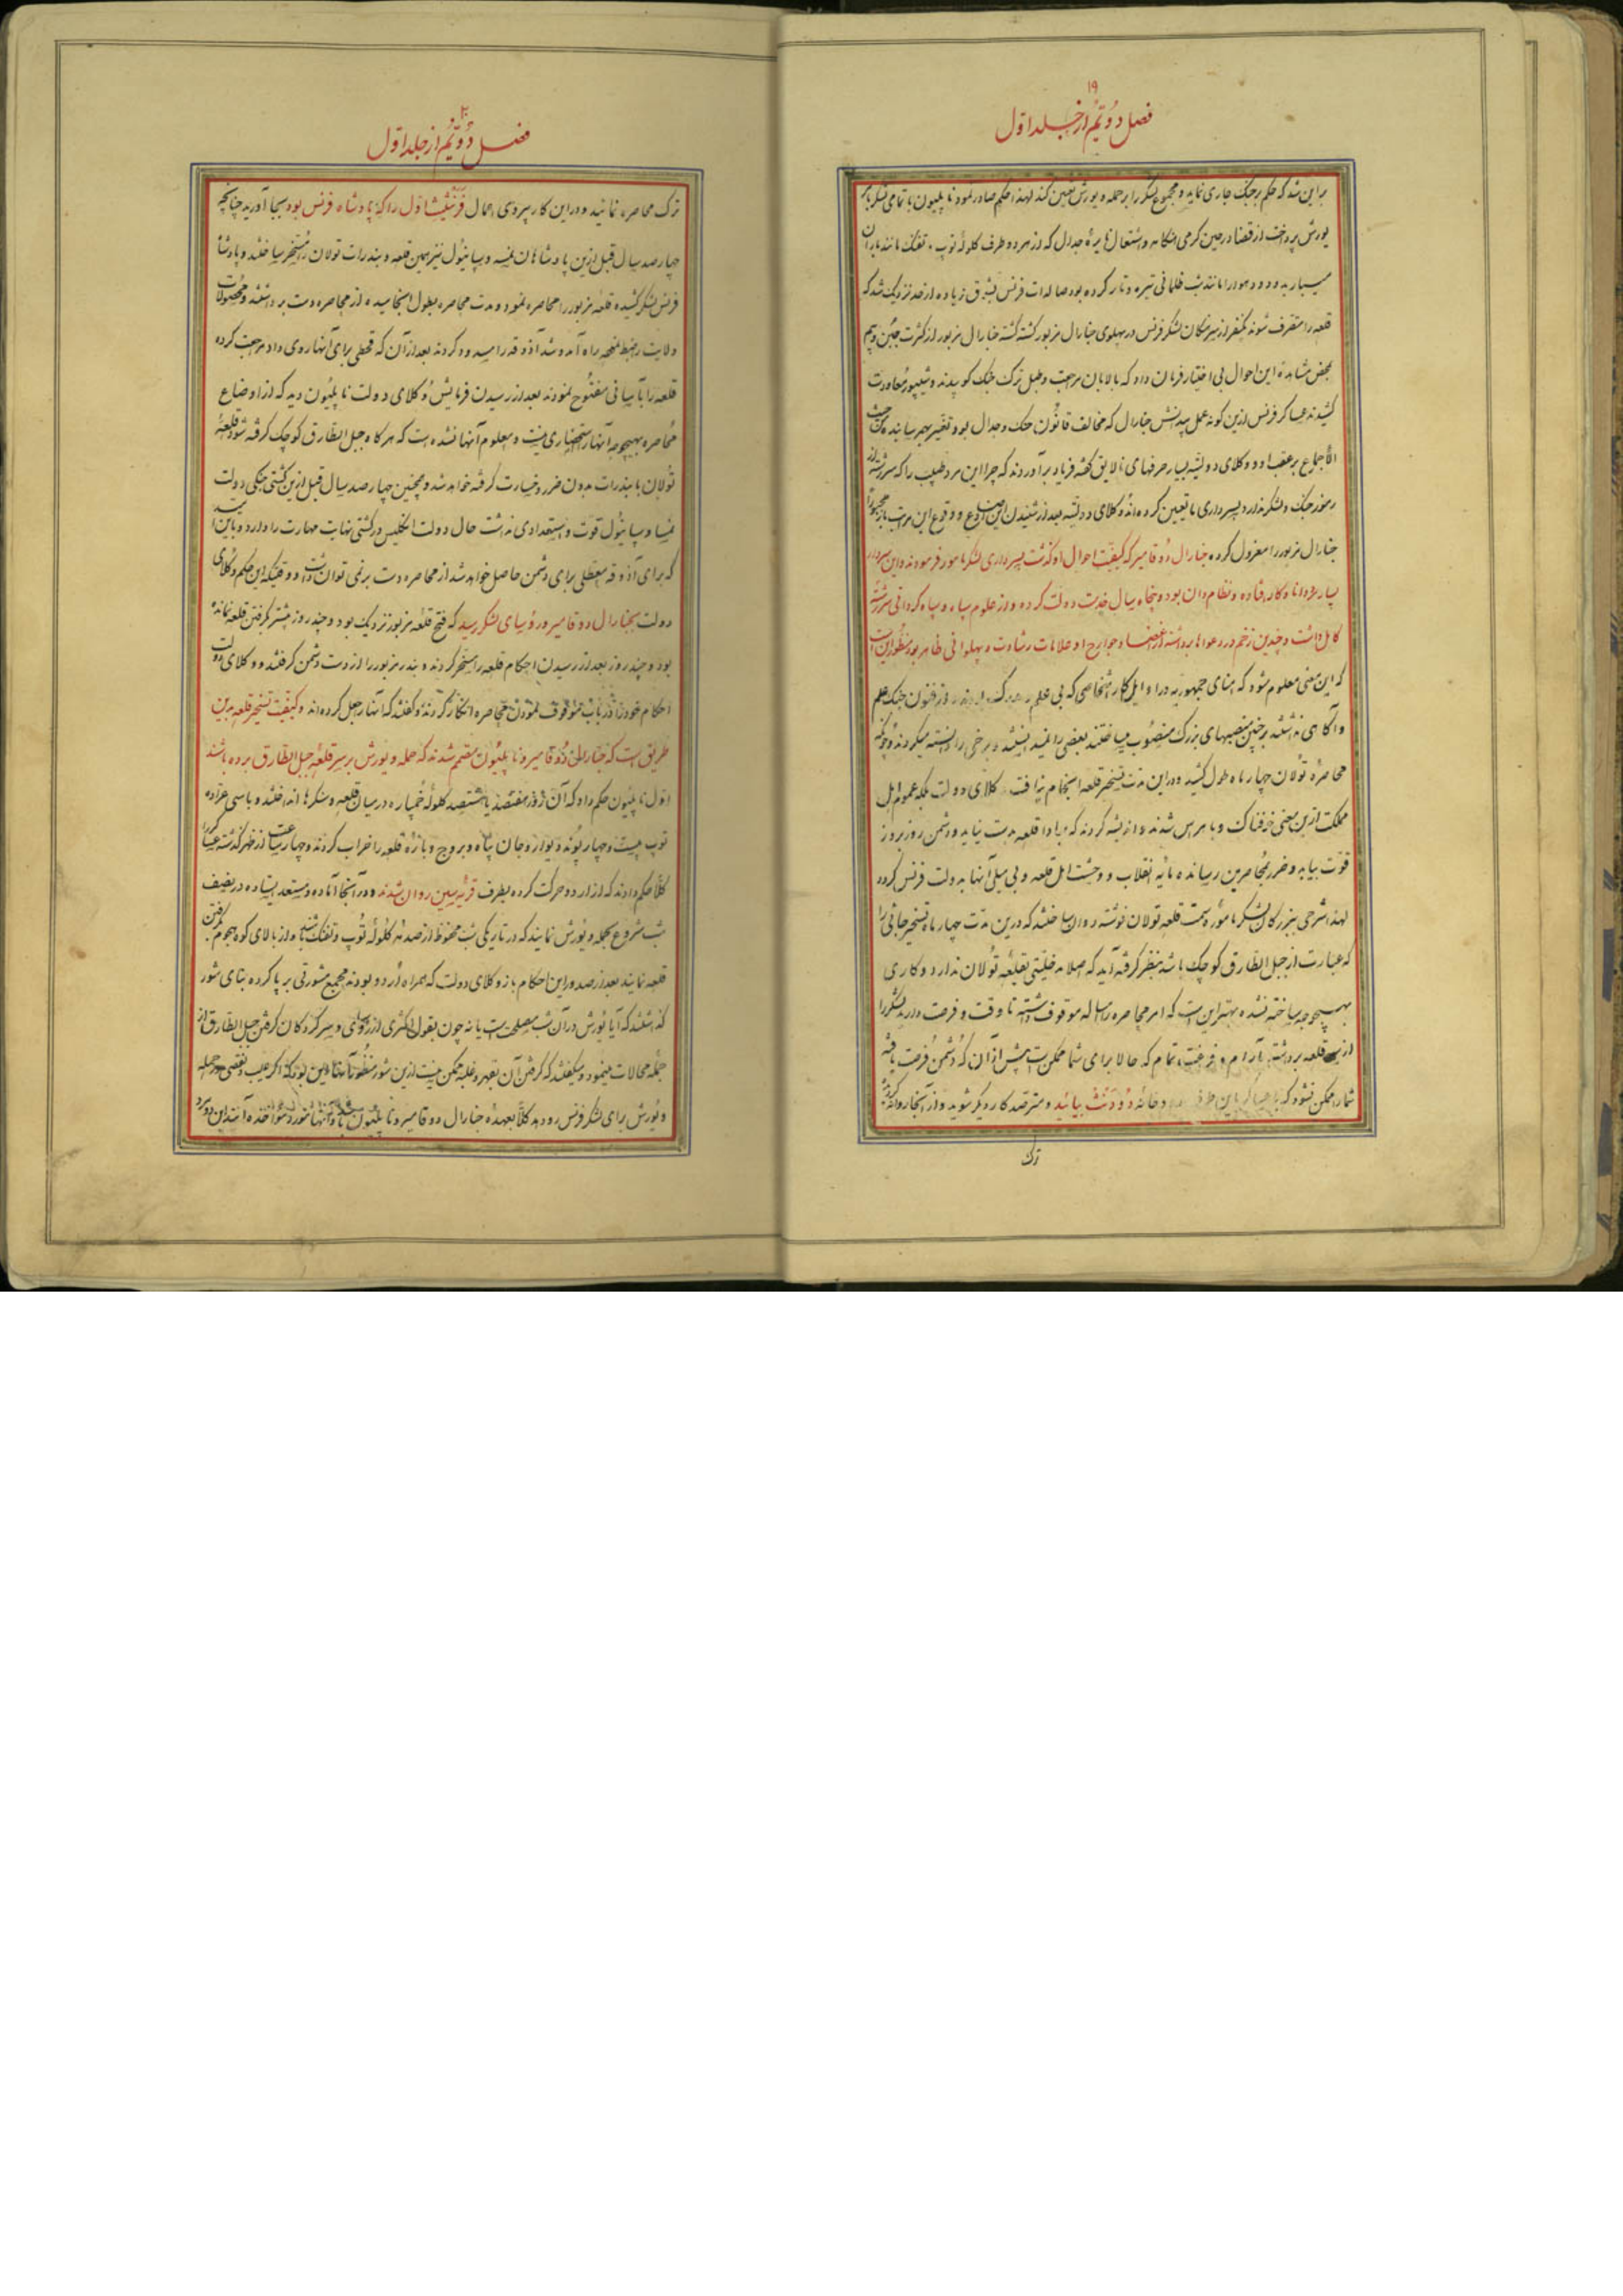 ۱۹
فصل دوّیُم از جلد اوّل
بر این شد که حکم بر جنک جاری نماید و مجموع لشکر را بر حمله و یورش تعین کند لهذا حکم صادر نمود نا پلیون با تمامی لشکر به
یورش پرداخت از قضا در حین کرمی هنکامه و اشتعال نایرهٔ جدال که از هر دو طرف کلولهٔ توپ و تفنک مانند باران
میبارید و دود هوا را مانند شب ظلمانی تیره و تار کرده بود صالدات فرنس بشوق زیاده از حد نزدیک شد که
قلعه را متصرف شوند یکنفر از سرهنکان لشکر فرنس در پهلوی جنارال مزبور کشته کشته جنارال مزبور از کثرت جبن و بیم
بمحض مشاهدهٔ این احوال بی اختیار فرمان داد که بالابان مرجعت و طبل ترک جنک کوبیدند و شیپور معاودت
کشیدند عساکر فرنس ازین کونه عمل بیدانش جنارال که مخالف قانُون جنک و جدال بود تغیّر بهم رسانیده من حیث
الاجماع بر عقب او و وکلای دولتیه بسیار حرفهای نالایق کفته فریاد برآوردند که چرا این مرد طبیب را که سر رشته از
رموز جنک و لشکر ندارد بسرداری ما تعیین کرده‌اند وکلای دولتیه بعد از شنیدن این اوضاع و وقوع این مراتب مجبوراً
جنارال مزبور را معزول کرده جنارال دُوقامیر که کیفیت احوال او کذشت بسرداری لشکر مامور فرمودند و این سردار
بسیار مرد دانا و کار افتاده و نظام دان بود و پنجاه سال خدمت دولت کرده و از علوم سپاه و سپاه کردانی سررشتهٔ
کامل داشت و چندین زخم در دعواها برداشته از اعضا و جوارح او علامات رشادت و پهلوانی ظاهر بود منظور این است
که این معنی معلوم شود که امنای جمهوریه در اوایل کار اشخاصی که بی علم و از فنون جنک علم
و آکاهی نداشتند بر چنین منصبهای بزرک منصوب میساختند بعضی را نفهمید و برخی را دانسته میکردند و چونکه
محاصرهٔ تولان چهار ماه طول کشید و در این مدت تسخیر قلعه انجام نیافت وکلای دولت بلکه عموم اهل
مملکت ازین معنی خوفناک و با هراس شدند و اندیشه کردند که مبادا قلعه بدست نیاید و دشمن روز بروز
قوّت بیابد و ضرر بمحاصرین رساند و مایه انقلاب و وحشت اهل قلعه و بی میلی آنها بدولت فرنس کردد
لهذا شرحی ببزرکان لشکر مامورهٔ سمت قلعه تولان نوشته روان ساختند که درین مدت چهار ماه تسخیر جائی را
که عبارت از جبل الطارق کوچک باشد بنظر کرفته آید که اصلا مدخلیتی بقلعهٔ تُولان ندارد و کاری
بهیچوجه ساخته نشده بهتر این است که امر محاصره را امسال موقوف داشته تا وقت و فرصت دارید لشکر را
از سر قلعه برداشته بآرام و فرغت تمام که حالا برای شما ممکن است پیش از آن که دُشمن فرصت یافته
شما را ممکن نشود که با عساکر باین طرف رودخانه دُودَنْث بیائید و مترصد کار دیکر شوید و از آنجا روانه کردید
ترک
۲۰
فصل دوّیُم از جلد اوّل
ترک محاصره نمائید و در این کار پیروی اعمال فرنثیث اوّل را که پادشاه فرنس بود بجا آورید چنانچه
چهار صد سال قبل ازین پادشاهان نمیسه و سپانیول نیز همین قلعه و بندرات تولان را مستخر ساختند و پادشاه
فرنس لشکر کشیده قلعه مزبور را محاصره نمود و مدت محاصره بطول انجامیده از محاصره دست برداشتند و محصولات
ولایت را ضبط نموده راه آمد و شد آذوقه را مسدود کردند بعد از آن که قحطی برای آنها روی داد مرجعت کرده
قلعه را بآسانی مفتُوح نمودند بعد از رسیدن فرمایش وُکلای دولت نا پلیُون دید که از اوضاع
محاصره بهیچوجه آنها را استحضاری نیست و معلوم آنها نشده است که هر کاه جبل الطّارق کوچک کرفته شود قلعهٔ
تُولان با بندرات بدون ضرر و خسارت کرفته خواهد شد و همچنین چهار صد سال قبل ازین کشتی جنکی دولت
نمیسا و سپانیُول قوّت و استعدادی نداشت حال دولت انکلیس در کشتی نهایت مهارت را دارد و باین سبب
که برای آذوقه معطلی برای دشمن حاصل نخواهد شد از محاصره دست برنمی توان داشت و وقتیکه این حکم وکلای
دولت بجنارال دوقامیر و رؤسای لشکر رسید که فتح قلعهٔ مزبور نزدیک بود و چند روز بیشتر بکرفتن قلعه نمانده
بود و چند روز بعد از رسیدن احکام قلعه را مسخر کردند و بندر مزبور را از دست دشمن کرفتند و وکلای دولت
احکام خود را در باب موقوف نمودن محاصره انکار کردند و کفتند که آنها را جعل کرده‌اند و کیفیّت تسخیر قلعه بدین
طریق است که جنارال دُوقامیر و نا پلیُون مصمّم شدند که حمله و یورش بر سر قلعهٔ جبل الطّارق برده باشند
اوّل نا پلیُون حکم داد که آن روز هفتصد یا هشتصد کلولهٔ خمپاره در میان قلعه و سنکرها انداختند و با سی عراده
توپ بیست و چهار پُوند دیوار و جان پناه و بروج و بارهٔ قلعه را خراب کردند و چهار ساعت از ظهر کذشته عساکر را
کلّاً حکم دادند که از اردو حرکت کرده بطرف قریهٔ سین روان شدند و در آنجا آماده و مستعد ایستاده در نصف
شب شروع بحمله و یُورش نمایند که در تاریکی شب محفوظ از صدمهٔ کلولهٔ تُوپ و تفنک شده و از بالای کوه هجوم بکرفتن
قلعه نمایند بعد از صدور این احکام باز وکلای دولت که همراه اُردو بودند مجمع مشورتی بر پا کرده بنای شور
کذاشتند که آیا یُورش در آن شب مصلحت است یا نه چون بقول اکثری از رؤسای و سر کردکان کرفتن جبل الطارق از
جمله محالات مینمود و میکفتند که کرفتن آن بقهر و غلبه ممکن نیست ازین شور منظور آنها این بود که اکر عیب و نقصی در حمله
و یُورش برای لشکر فرنس رو دهد کلّاً بعهدهٔ جنارال دوقامیر و نا پلیُون